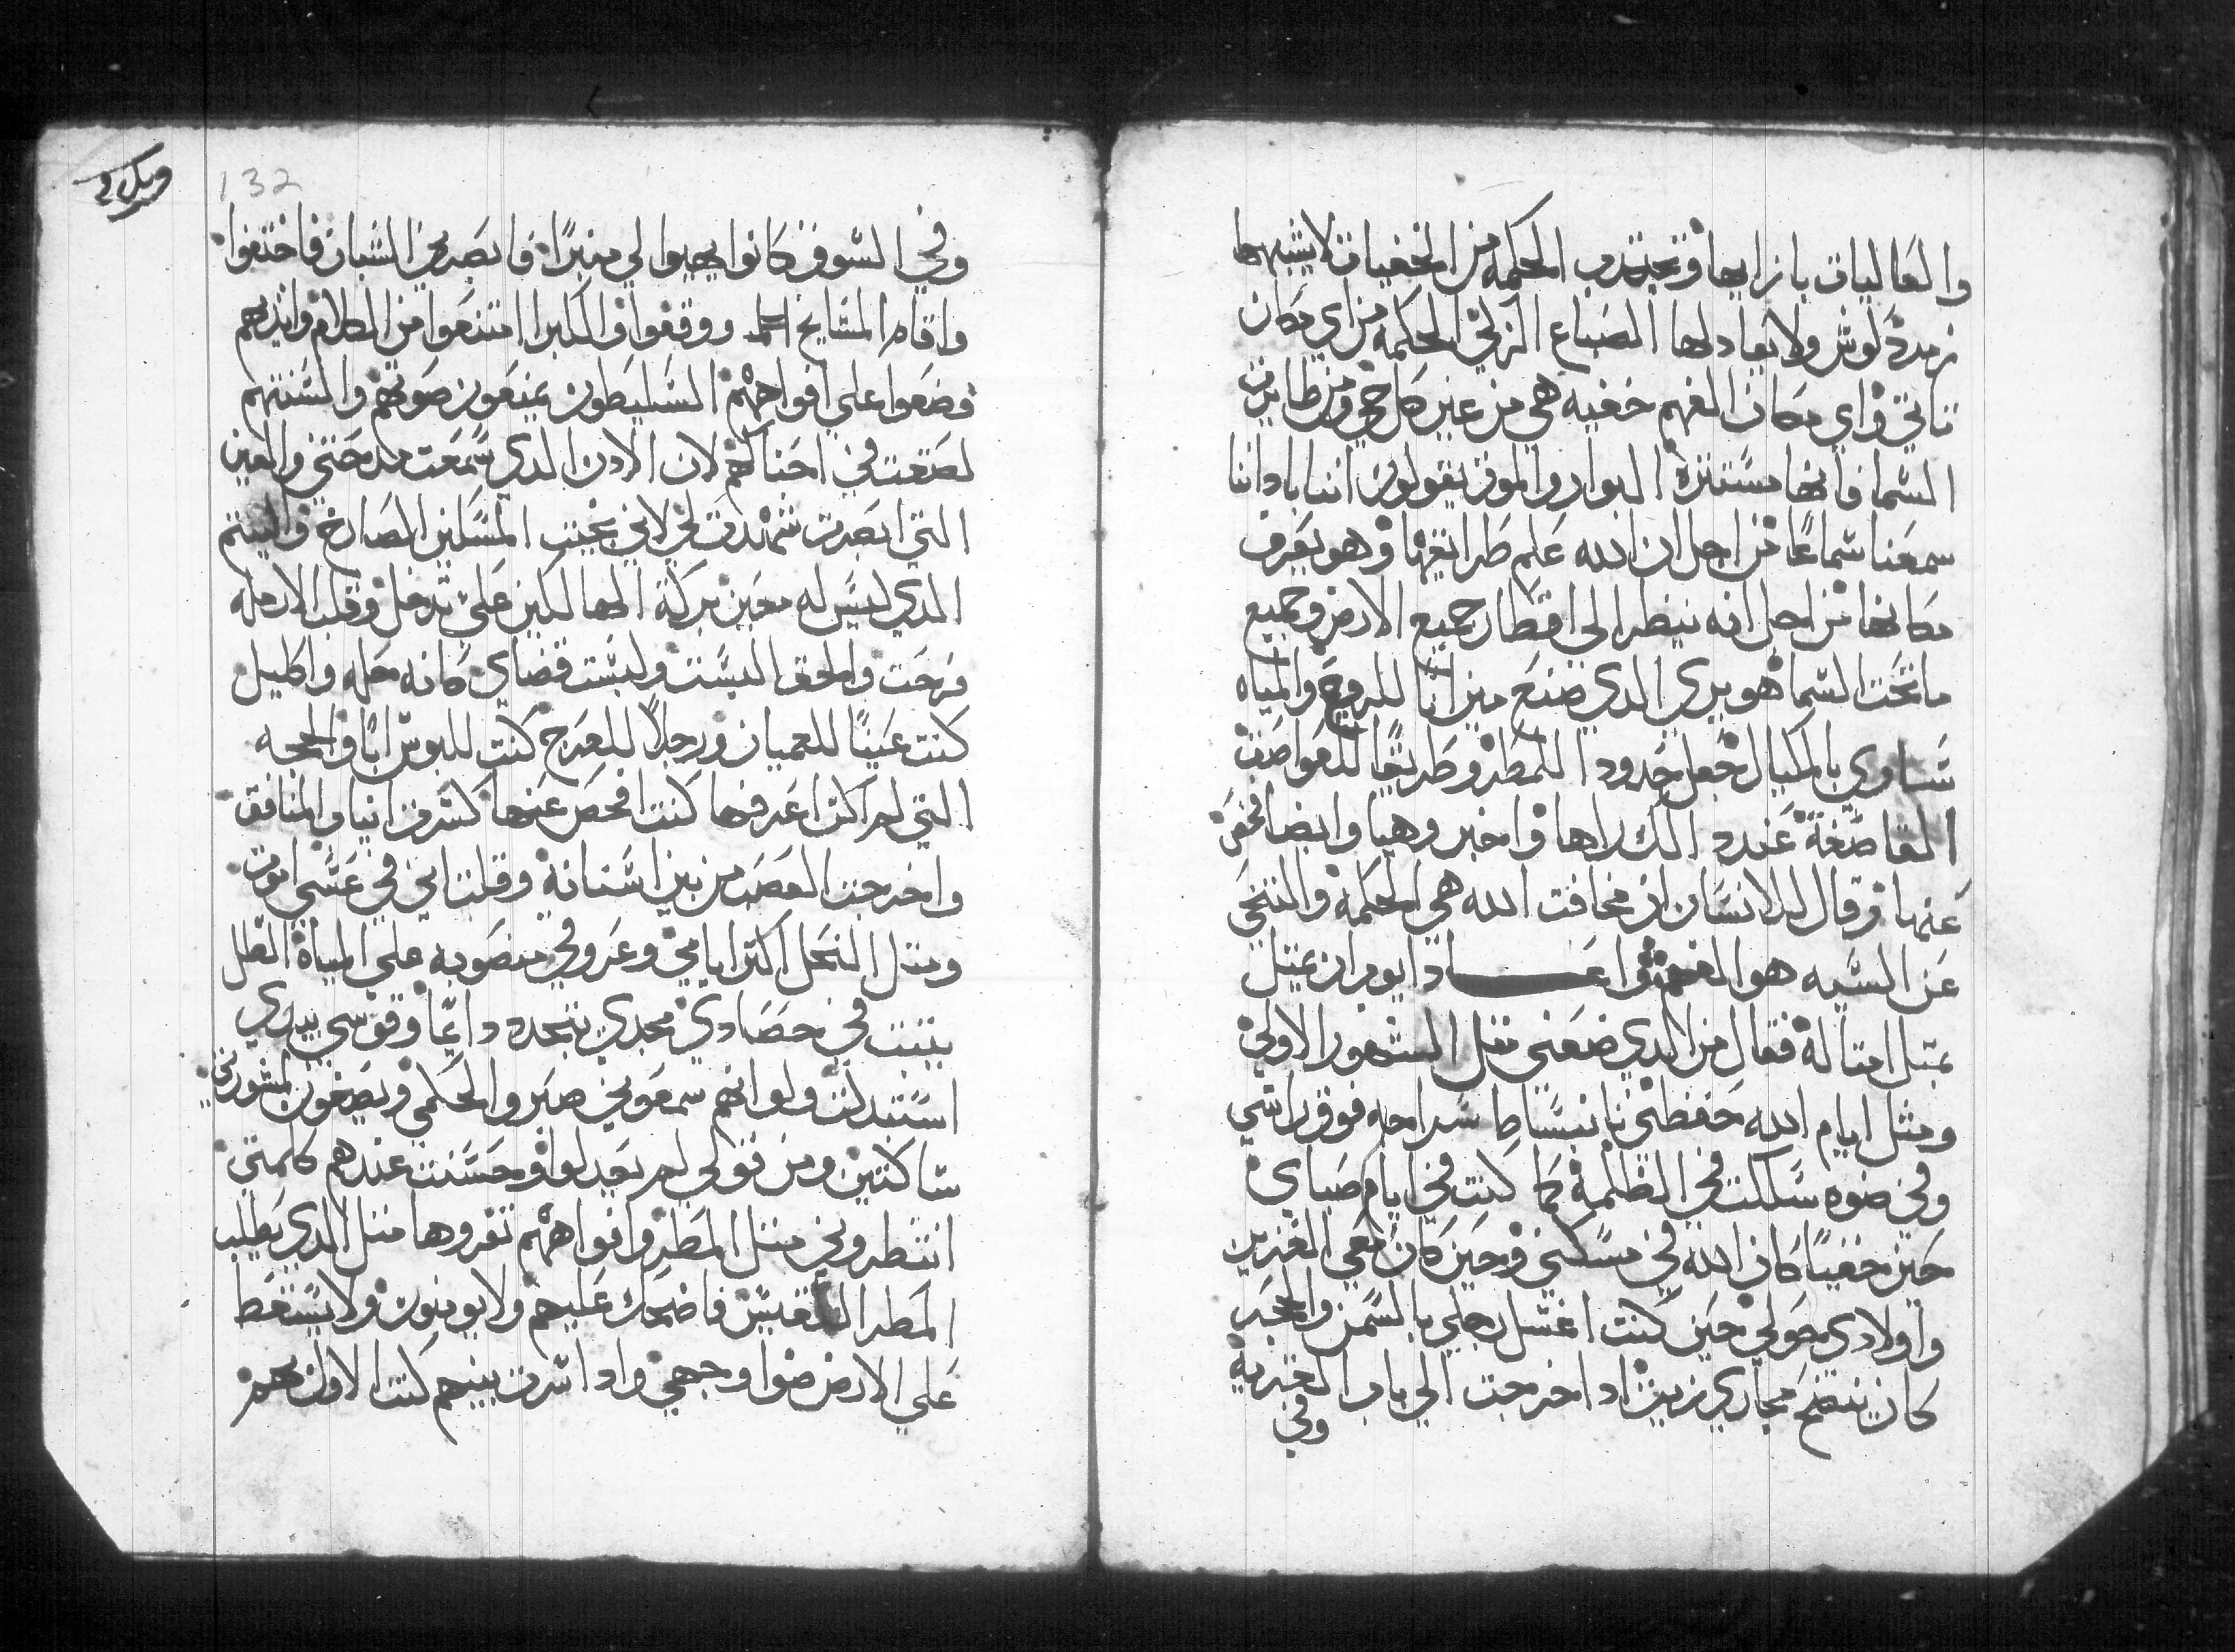 والعاليات بازايها وتجتدب الحكمه من الخفيات لا يشبهها
زمردة لوش ولا يعادلها الصباع الزلي الحكمه من اي مكان
تاتي واي مكان الفهم خفيه هي من عين كل حي ومن طاير
السما فانها مستتره البوار والموت يقولون اننا باداننا
سمعنا سماعًا من اجل ان الله علم طرايقها وهو يعرف
مكانها من اجل انه ينظر الى اقطار جميع الارض وجميع
ما تحت السما هو يري الدي صنع ميزانا للروح والمياه
ساوي بالمكيال جعل حدود اللمطر وطريقًا للعواصف
القاصفة عندد الك راها واخبر وهيا وايضا فحص
عنها وقال للانسان ان مخافت الله هي الحكمه والتنحي
عن السيه هو الفهم واعـــاد ايوب ان يمثل
بمثل امثاله فقال من الدي ضعني مثل الشهور الاولي
ومثل ايام الله حفظني بانبساط سراجه فوق راسي
وفي ضوه سلكت في الظلمة كما كنت في ايام صباي
حين خفيًا كان الله في مسكني وحين كان معي العزيز
واولادي حولي حين كنت اغسل رجلي بالسمن والحجر
كان ينضح مجاري زيت اد اخرجت الي باب القرية
وفي
ويل ٢
132
وفي السوق كانوا يهيوا لي منبرًا فابصرني الشبان فاختفوا
واقام المشايخ ووقفوا والكبرا امتنعوا من الكلام وايديهم
وضعوا علي افواههم السليطون يمنعون صوتهم والسنتهم
لصقت في احناكهم لان الادن الدي سمعت مدحتني والعين
التي ابصرت شهدت لي لاني نجيت المسكين الصارخ واليتيم
الدي ليس له معين بركة الهالكين علي تدخل وقلب الارمله
فرحت والحق البست ولبست قضاي كانه حله واكليل
كنت عينًا للعميان ورجلاً للعرج كنت للبوس ابًا والحجه
التي لم اكن اعرفها كنت افحص عنها كسرت انياب المنافق
واخرجت العصر من بين اسنانه وقلت اني في عشي اموت
ومثل النخل اكثر ايامي وعروقي منصوبه علي المياه الطل
يثبت في حصادي مجدي يتجدد دايمًا وقوسي بيدي
استبدلت ولو انهم سمعوني صبروا لحكمي ويصغون لمشورتي
ساكتين ومن قولي لم يعدلوا وحسنت عندهم كلمتي
انتطروني مثل المطر وافواههم تفروها مثل الدي يطلب
المطر اللقيش فاضحك عليهم ولا يومنون ولا يسقط
علي الارض ضوا وجهي واد اسرت بينهم كنت الاول بهم